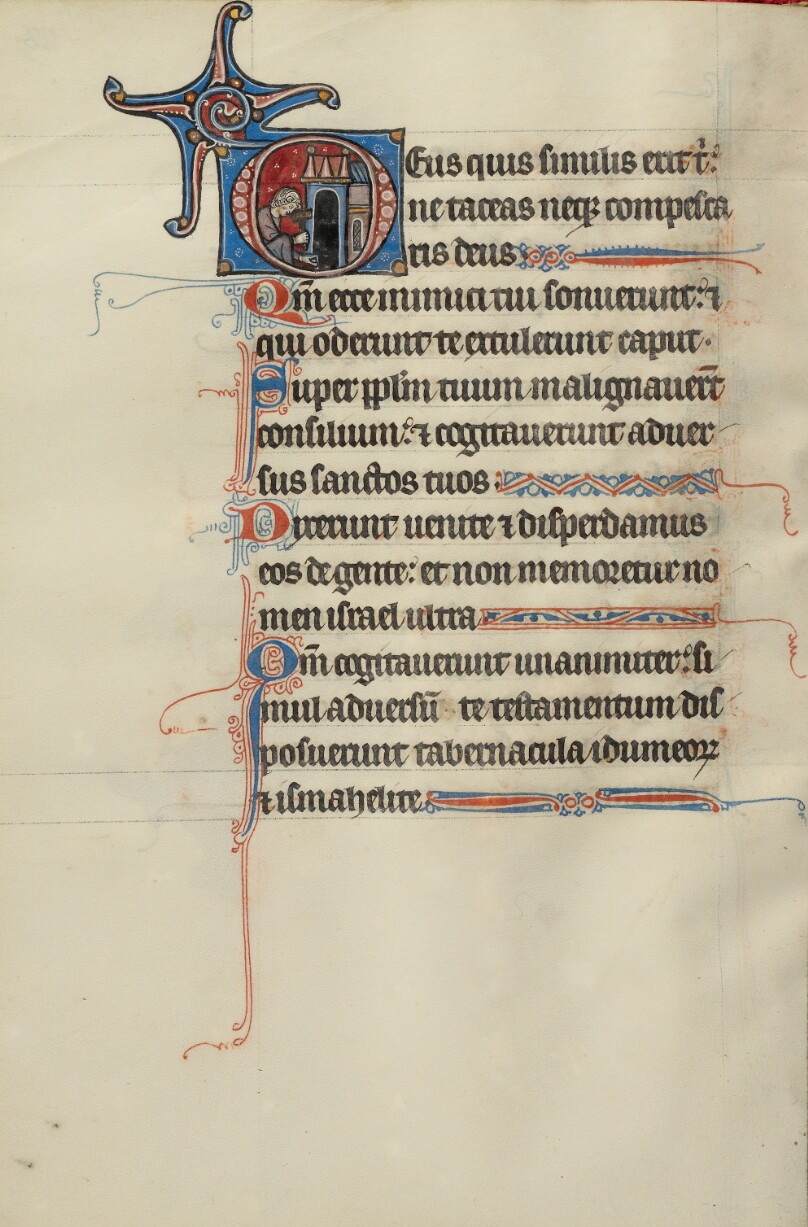 Deus quis similis erit t̾:
ne taceas neqꝫ compesca
ris deus
Qm̄ ecce inimici tui sonuerunt: ⁊
qui oderunt te extulerunt caput.
Super pplm̄ tuum malignauer̄t
consilium: ⁊ cogitauerunt aduer
sus sanctos tuos
Dixerunt uenite ⁊ disperdamus
eos de gente: et non memoretur no
men israel ultra
Qm̄ cogitauerunt unanimiter: si
mul aduersū te testamentum dis
posuerunt tabernacula idumeoꝝ
⁊ ismahelite